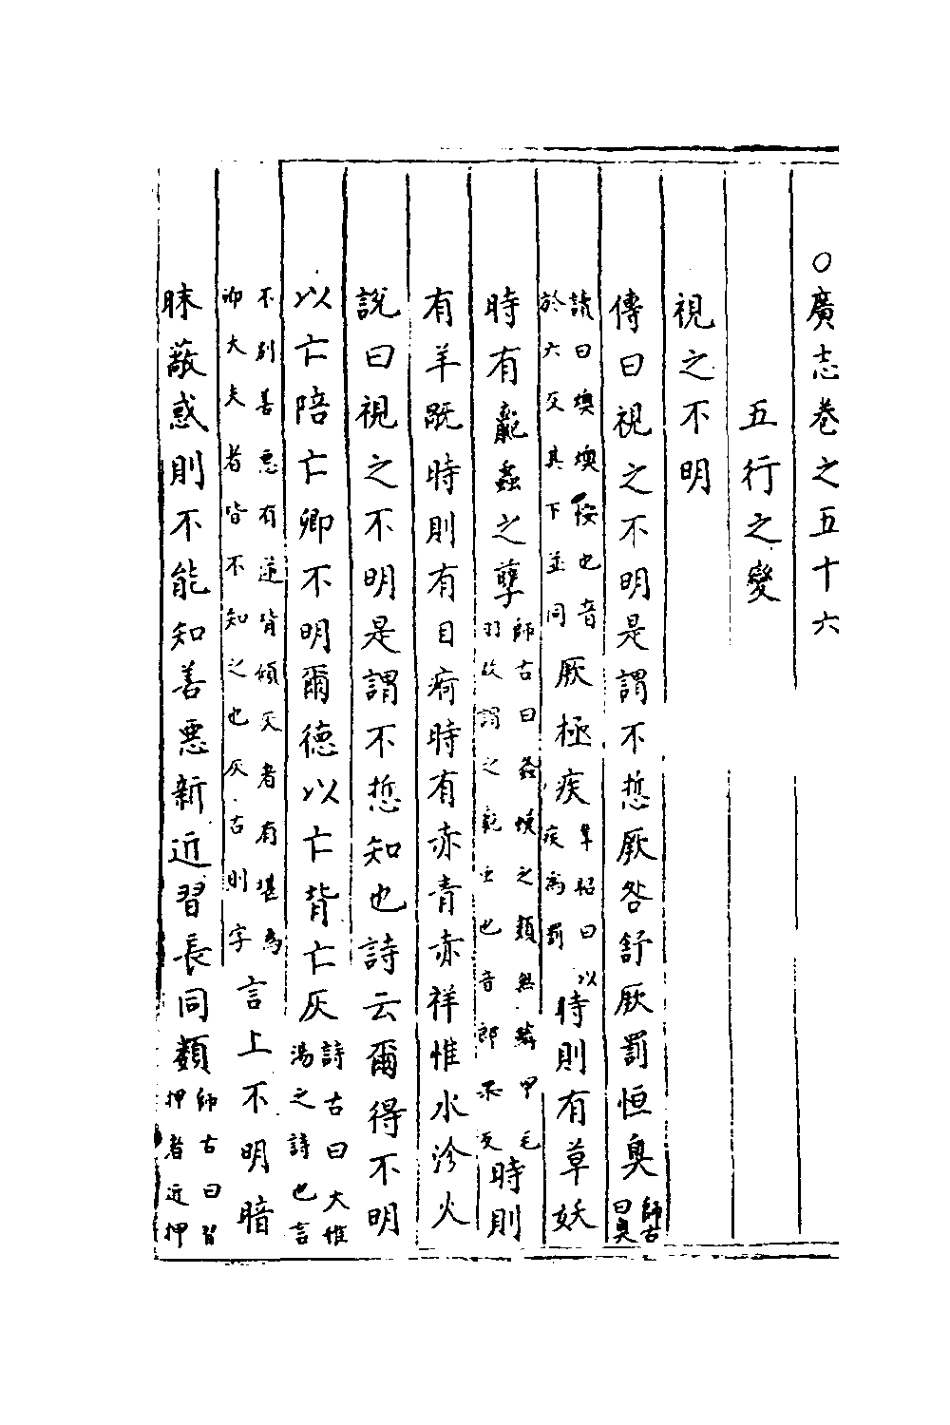 ○廣志卷之五十六
五行之變
視之不明
傳曰視之不明是謂不悊厥咎舒厥罰恒奧師古曰奧
讀曰燠燠煖也音於六反其下並同厥極疾韋昭曰以疾為罰時則有草妖
時有蠃蟲之孽師古曰螽螟之類無鱗甲毛羽故謂之蠃蟲也音郎果反時則
有羊旤時則有目痾時有赤眚赤祥惟水沴火
說曰視之不明是謂不悊知也詩云爾得不明
以亡陪亡卿不明爾德以亡背亡仄詩古曰大惟湯之詩也言
不別善惡有逆背傾仄者有堪為卿大夫者皆不知之也仄古則字言上不明暗
眛蔽惑則不能知善惡新近習長同類師古曰習押者近押